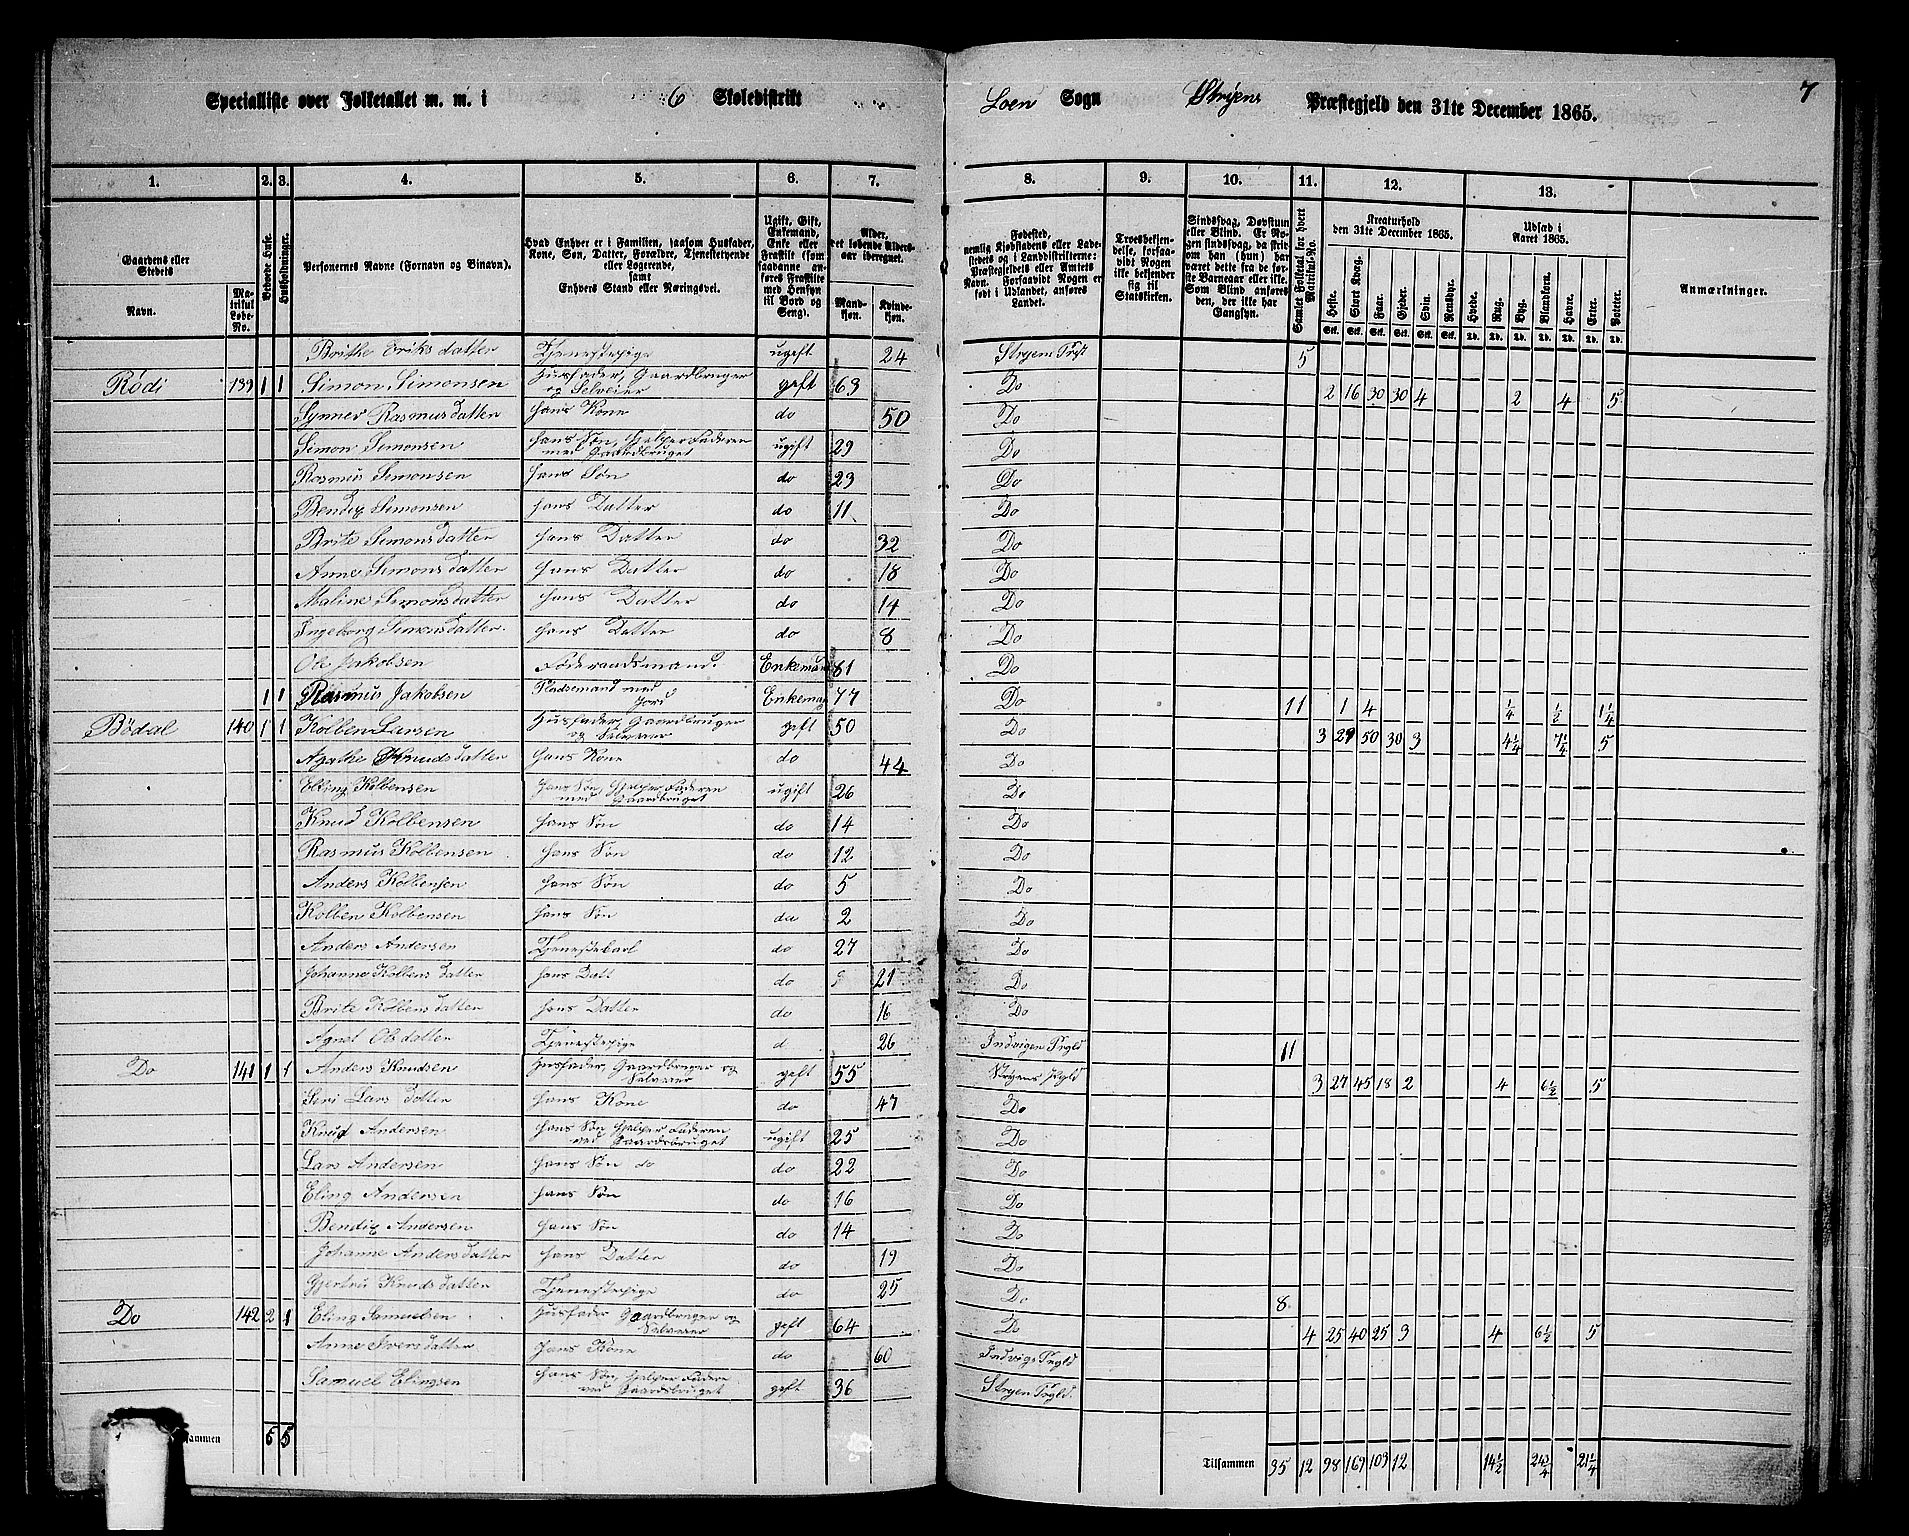 Specialliste over Folketallet m. m. i 6 Skoledistrikt Loen Sogn Stryens Præstegjeld den 31te December 1865. 7
1. 2. 3. 4. 5. 6. 7. 8. 9. 10. 11. 12. 13.
Gaardens eller Stedets
Navn. Matrikul Løbe-No.
Beboede Huse.
Husholdninger.
Personernes Navne (Fornavn og Binavn).
Hvad Enhver er i Familien, saasom Husfader, Kone, Søn, Datter, Forældre, Tjenestetyende eller Logerende, samt Enhvers Stand eller Næringsvei.
Ugift, Gift, Enkemand, Enke eller Fraskilt (som saadanne anføres Fraskilte med Hensyn til Bord og Seng).
Alder, det løbende Alders-aar iberegnet.
Mandkjøn. Kvindekjøn.
Fødested, nemlig Kjøbstadens eller Ladestedets og i Landdistrikterne: Præstegjeldets eller Amtets Navn. Forsaavidt Nogen er født i Udlandet, anføres Landet.
Troesbekjendelse, forsaavidt Nogen ikke bekjender sig til Statskirken.
Sindssvag, Døvstum eller Blind. Er Nogen sindssvag, da skriv om han (hun) har været dette fra de første Barneaar eller ikke. Som Blind anføres den, der ikke har Gangsyn.
Samlet Folketal for hvert Matrikul-No.
Kreaturhold den 31te December 1865.
Heste. Stort Kvæg. Faar. Gjeder. Svin. Rensdyr.
Udsæd i Aaret 1865.
Hvede. Rug. Byg. Blandkorn. Havre. Erter. Poteter.
Anmærkninger.
Brithe Eriksdatter Tjenestepige ugift 24 Stryens Prgt 5
Rødi 139 1 1 Simon Simonsen Husfader, Gaardbruger og Selveier gift 63 Do 2 16 30 30 4 2 4 5
Synner Rasmusdatter Hans Kone do 50 Do
Simon Simonsen Hans Søn, Hjelper Faderen med Gaardbruget ugift 29 Do
Rasmus Simonsen Hans Søn do 23 Do
Bendix Simonsen Hans Datter do 11 Do
Brite Simonsdatter Hans Datter do 32 Do
Anne Simonsdatter Hans Datter do 18 Do
Maline Simonsdatter Hans Datter do 14 Do
Ingeborg Simonsdatter Hans Datter do 8 Do
Ole Jakobsen Føderaadsmand Enkemand 81 Do
1 1 Rasmus Jakobsen Pladsemand med Jord Enkemand 77 Do 11 1 4 1/4 1/2 1 1/4
Bødal 140 1 1 Kolben Larsen Husfader, Gaardbruger og Selveier gift 50 Do 3 29 50 30 3 4 1/4 7 1/4 5
Agathe Knudsdatter Hans Kone do 44 Do
Eling Kolbensen Hans Søn, Hjelper Faderen med Gaardbruget ugift 26 Do
Knud Kolbensen Hans Søn do 14 Do
Rasmus Kolbensen Hans Søn do 12 Do
Anders Kolbensen Hans Søn do 5 Do
Kolben Kolbensen Hans Søn do 2 Do
Anders Andersen Tjenestekarl do 27 Do
Johanne Kolbensdatter Hans Datt do 21 Do
Brite Kolbensdatter Hans Datter do 16 Do
Agnet Olsdatter Tjenestepige d 26 Indvigen Prgld 11
Do 141 1 1 Anders Knudsen Husfader, Gaardbruger og Selveier gift 55 Stryens Prgld 3 27 45 18 2 4 6 1/2 5
Seri Larsdatter Hans Kone do 47 Do
Knud Andersen Hans Søn Hjelper Faderen ved Gaardsbruget ugift 25 Do
Lars Andersen Hans Søn do do 22 Do
Eling Andersen Hans Søn do 16 Do
Bendix Andersen Hans Søn do 14 Do
Johanne Andersdatter Hans Datter do 19 Do
Gjertru Knudsdatter Tjenestepige do 25 Do 8
Do 142 2 1 Eling Samuelsen Husfader Gaardbruger og Selveier gift 64 Do 4 25 40 25 3 4 6 1/2 5
Anne Iversdatter Hans Kone do 60 Indvigs Prgld
Samuel Elingsen Hans Søn, Hjelper Fadere ved Gaardsbruget gift 36 Stryen Prgld.
6 5 Tilsammen 35 12 98 169 109 12 14 1/2 24 3/4 21 1/4